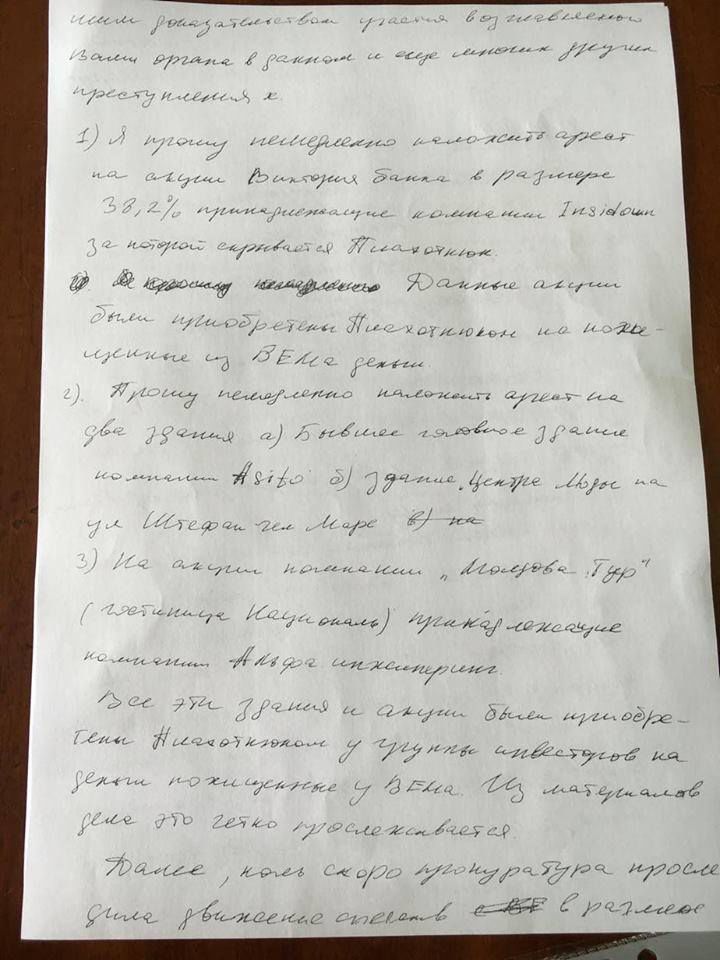 шим доказательством участия возглавляемого
Вами органа в данном и еще многих других
преступлениях.
1) Я прошу немедленно наложить арест
на акции Виктория банка в размере
38,2% принадлежащие компании Insidown
за которой скрывается Плахотнюк.
Данные акции
были приобретены Плахотнюком на похи-
щенные из ВЕМа деньги.
2). Прошу немедленно наложить арест на
два здания а) Бывшее головное здание
компании Asito б) здание „Центра Моды на
ул Штефан чел Маре в) на
3) На акции компании „Молдова Тур"
(гостиница Националь) принадлежащие
компании Альфа инжиниринг.
Все эти здания и акции были приобре-
тены Плахотнюком у группы инвесторов на
деньги похищенные у ВЕМа. Из материалов
дела это четко прослеживается.
Далее, коль скоро прокуратура просле
дила движение в размере